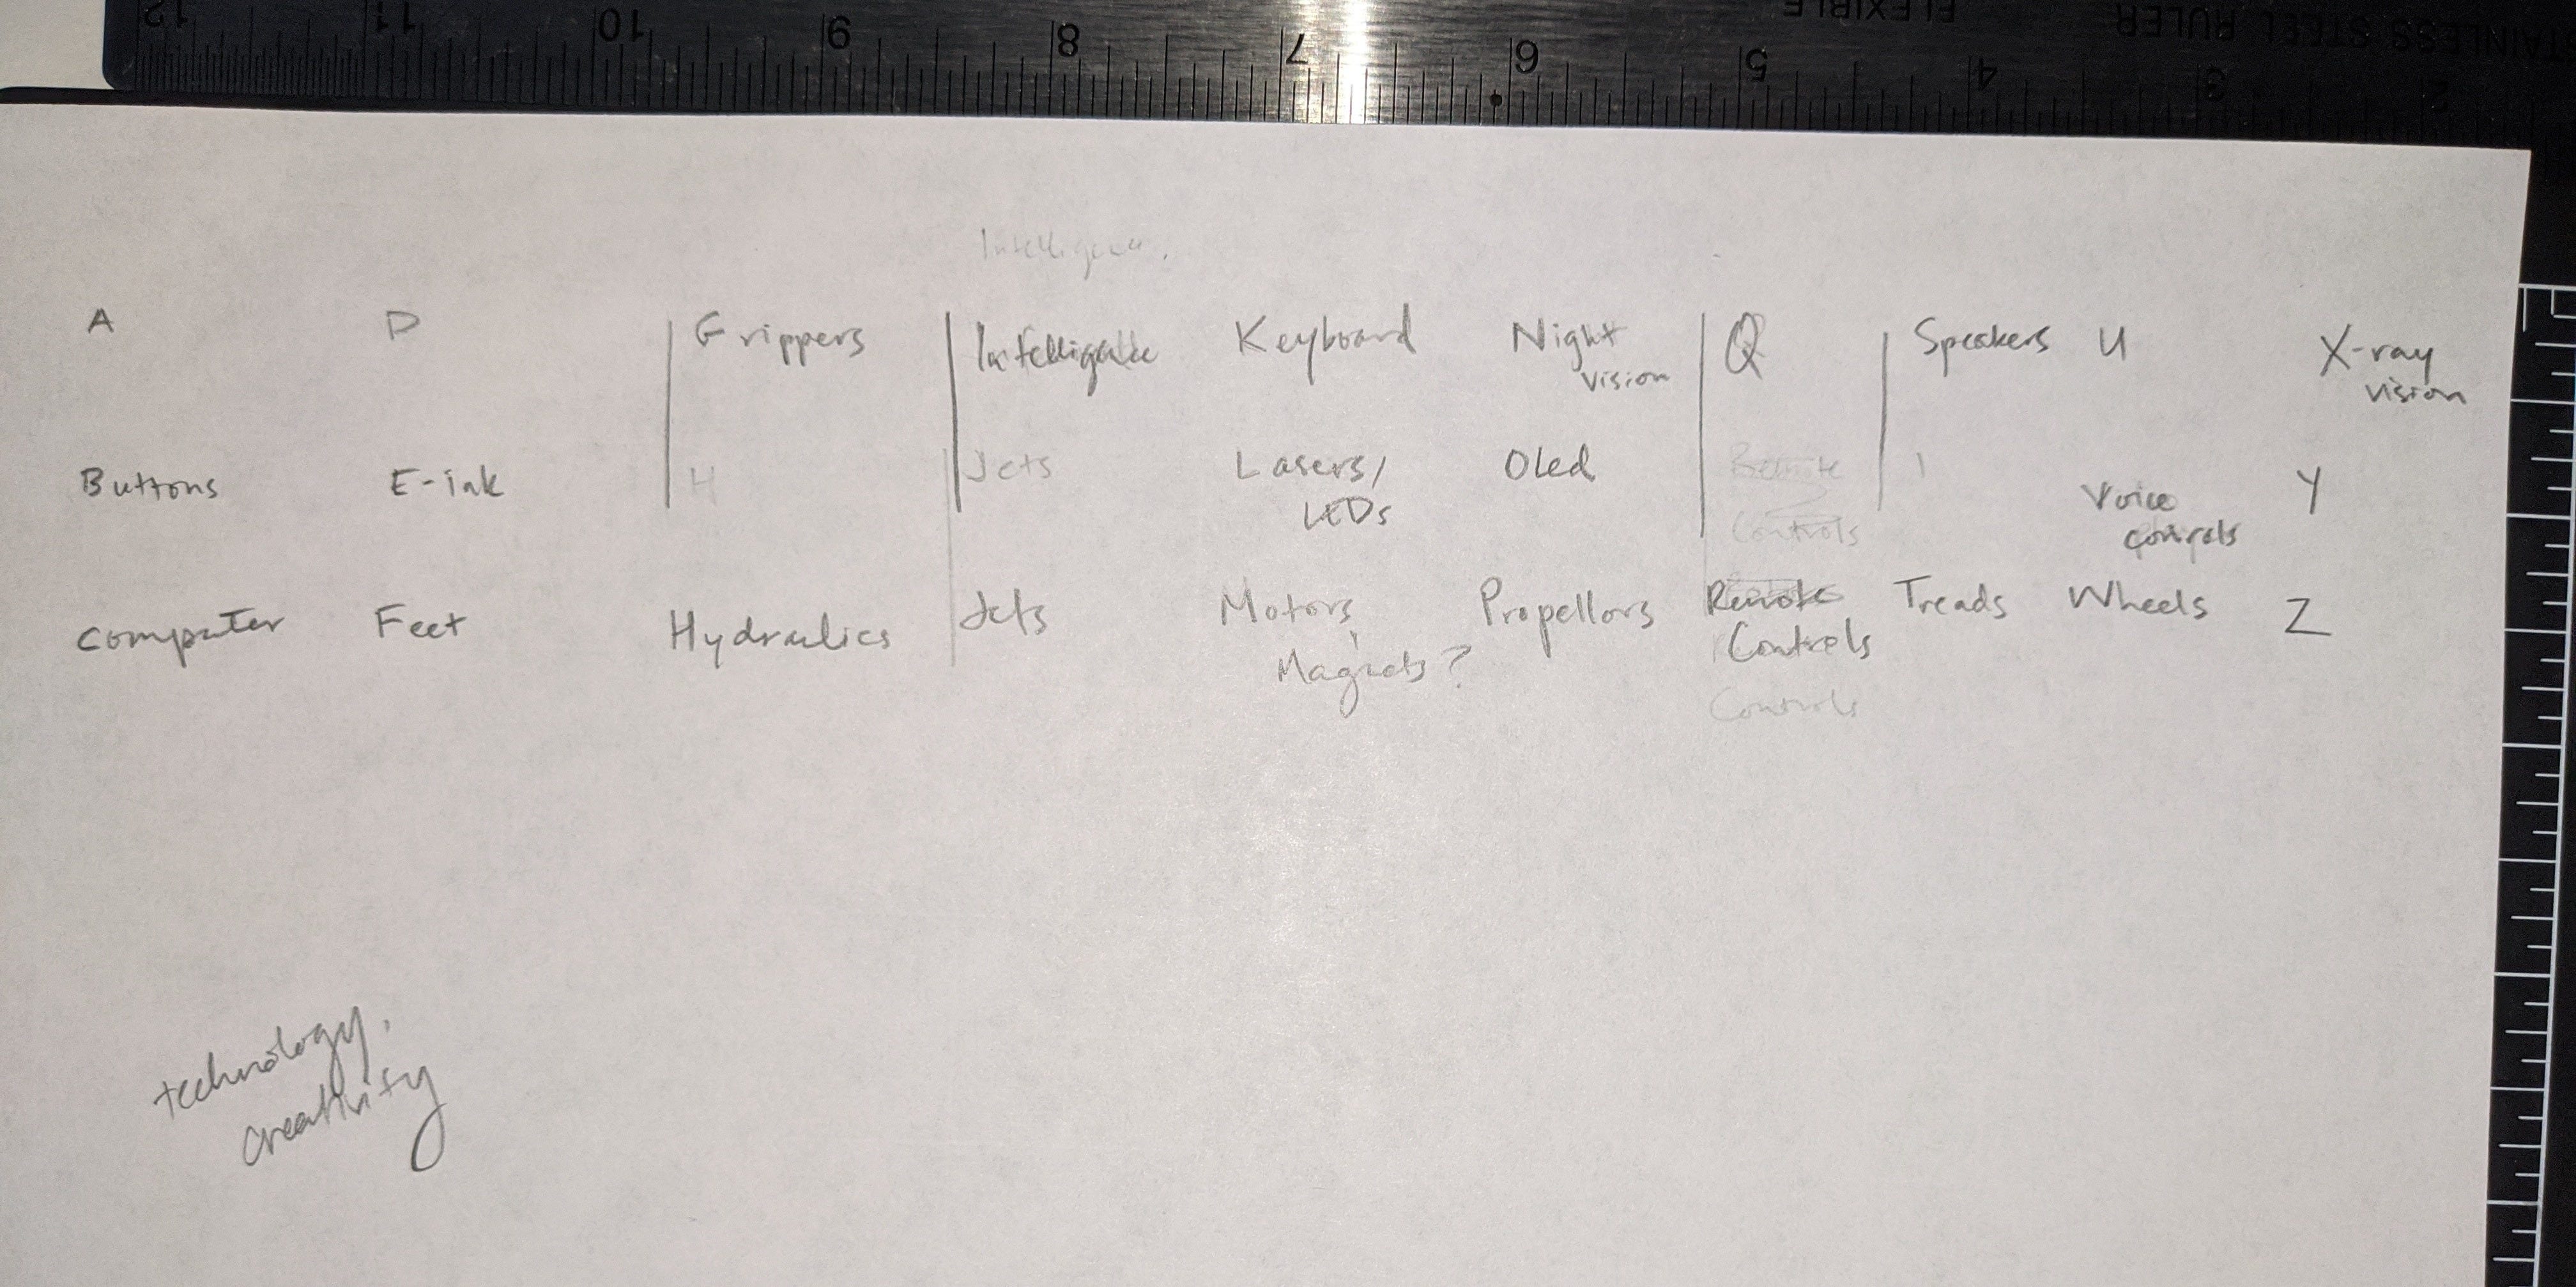 12 11 10 9 8 7 6 5 4 3 2
FLEXIBLE
STAINLESS STEEL RULER
A D Grippers Intelligence Keyboard Night vision Q Speakers U X-ray vision
Buttons E-ink H Jets Lasers/ LEDs Oled Remote Controls Voice controls Y
Computer Feet Hydraulics Jets Motors, Magnets? Propellors Remote Controls Treads Wheels Z
Controls
technology,
creativity